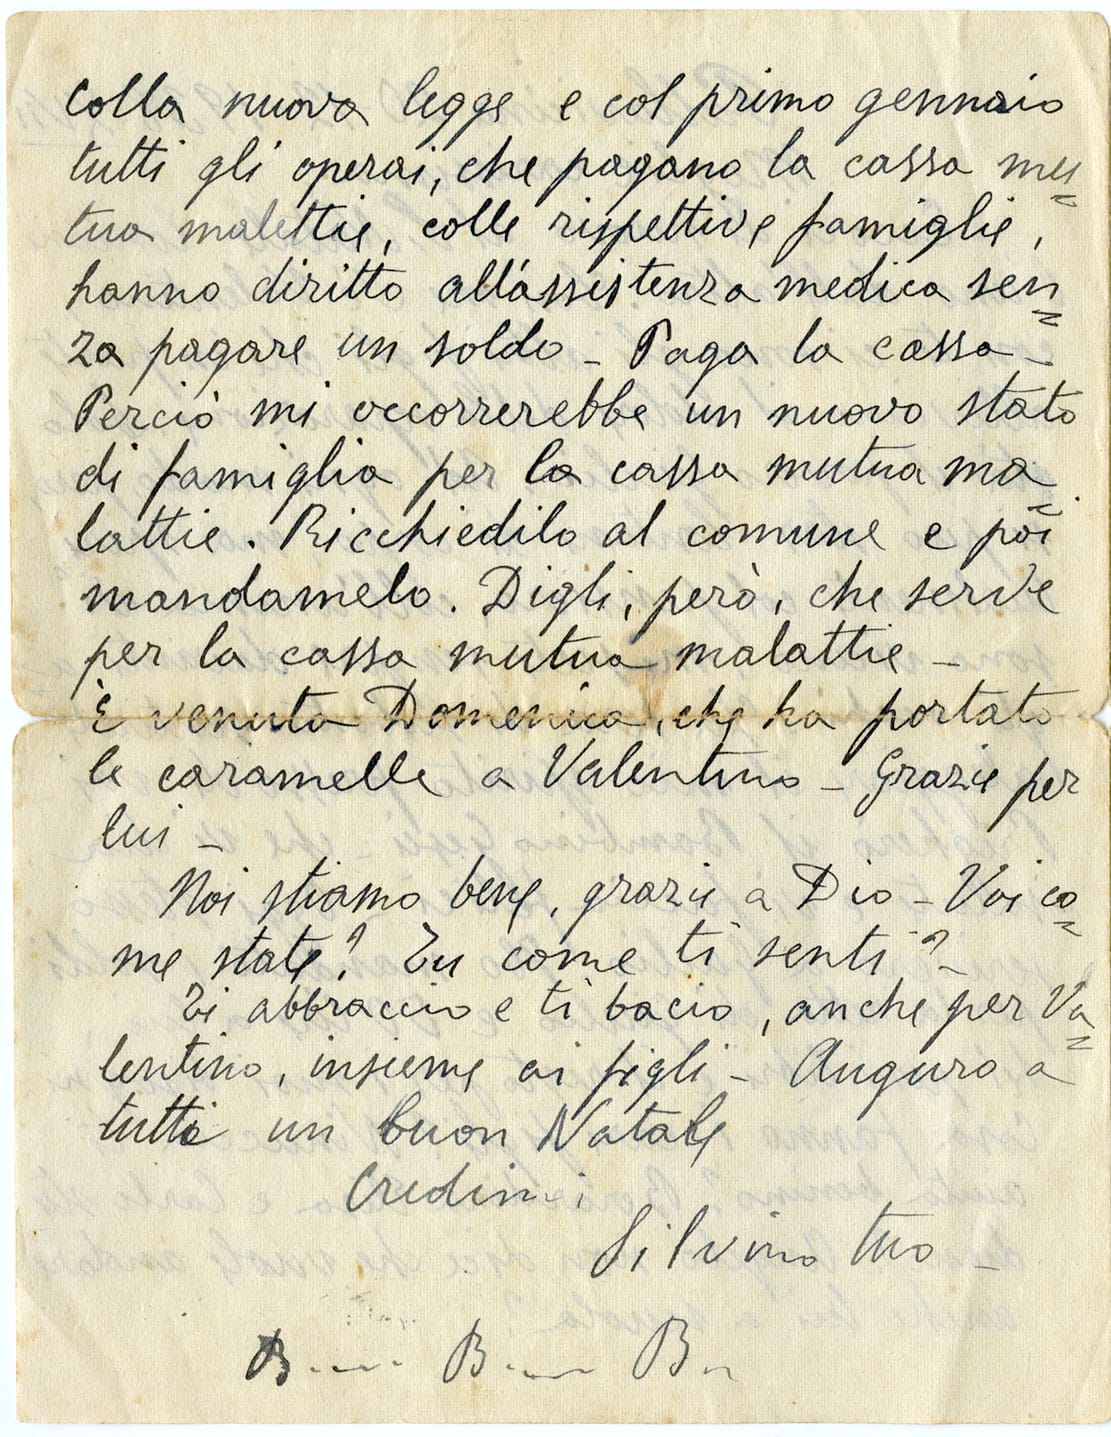 colla nuova legge e col primo gennaio
tutti gli operai, che pagano la cassa mu=
tua malettie, colle rispettive famiglie,
hanno diritto all'assistenza medica sen=
za pagare un soldo - Paga la cassa -
Perciò mi occorrerebbe un nuovo stato
di famiglia per la cassa mutua ma=
lattie. Ricchiedilo al comune e poi
mandamelo. Digli, però, che serve
per la cassa mutua malattie -
È venuta Domenica, che ha portato
le caramelle a Valentino - Grazie per
lui -
Noi stiamo bene, grazie a Dio - Voi co=
me state? Tu come ti senti? -
Ti abbraccio e ti bacio, anche per Va=
lentino, insieme ai figli - Auguro a
tutti un buon Natale
Credimi
Silvino tuo -
B.... B.... B..